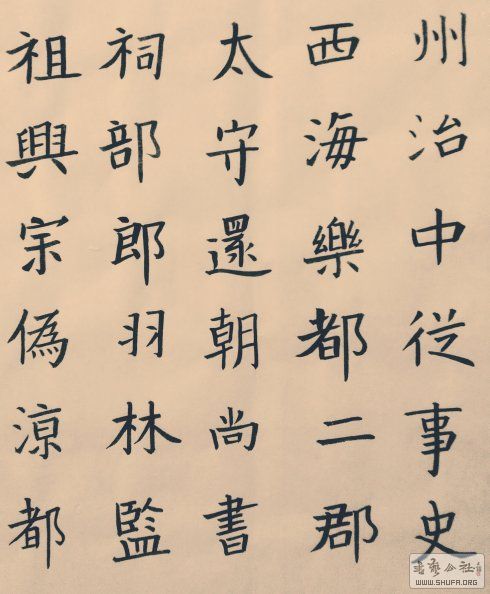 州治中從事史
西海樂都二郡
太守還朝尚書
祠部郎羽林監
祖興宗偽涼都
書藝公社
WWW.SHUFA.ORG